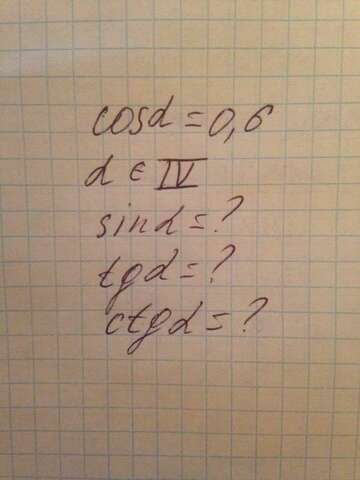 cosα = 0,6
α ∈ IV
sinα = ?
tgα = ?
ctgα = ?